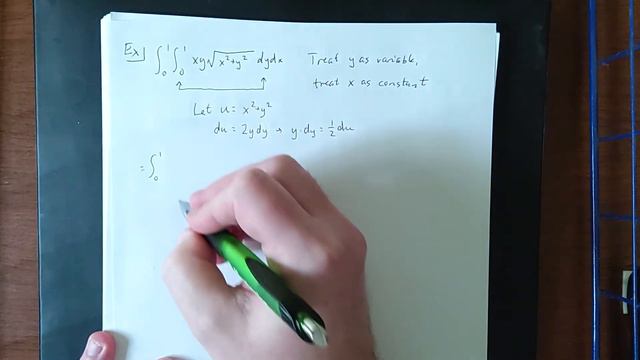 Ex] ∫₀¹∫₀¹ xy√(x²+y²) dydx Treat y as variable,
treat x as constant
Let u = x²+y²
du = 2ydy → y·dy = ½du
= ∫₀¹